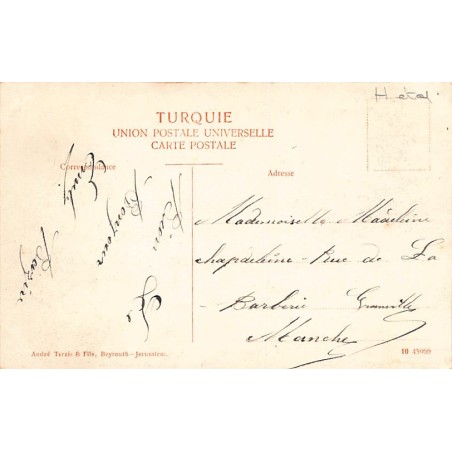 H
TURQUIE
UNION POSTALE UNIVERSELLE
CARTE POSTALE
Correspondance
Adresse
Bonjour
Mademoiselle Madeleine
Chapdelaine - Rue de La
Barberie Granville
Manche
André Terzis & Fils, Beyrouth—Jerusalem.
10 45969